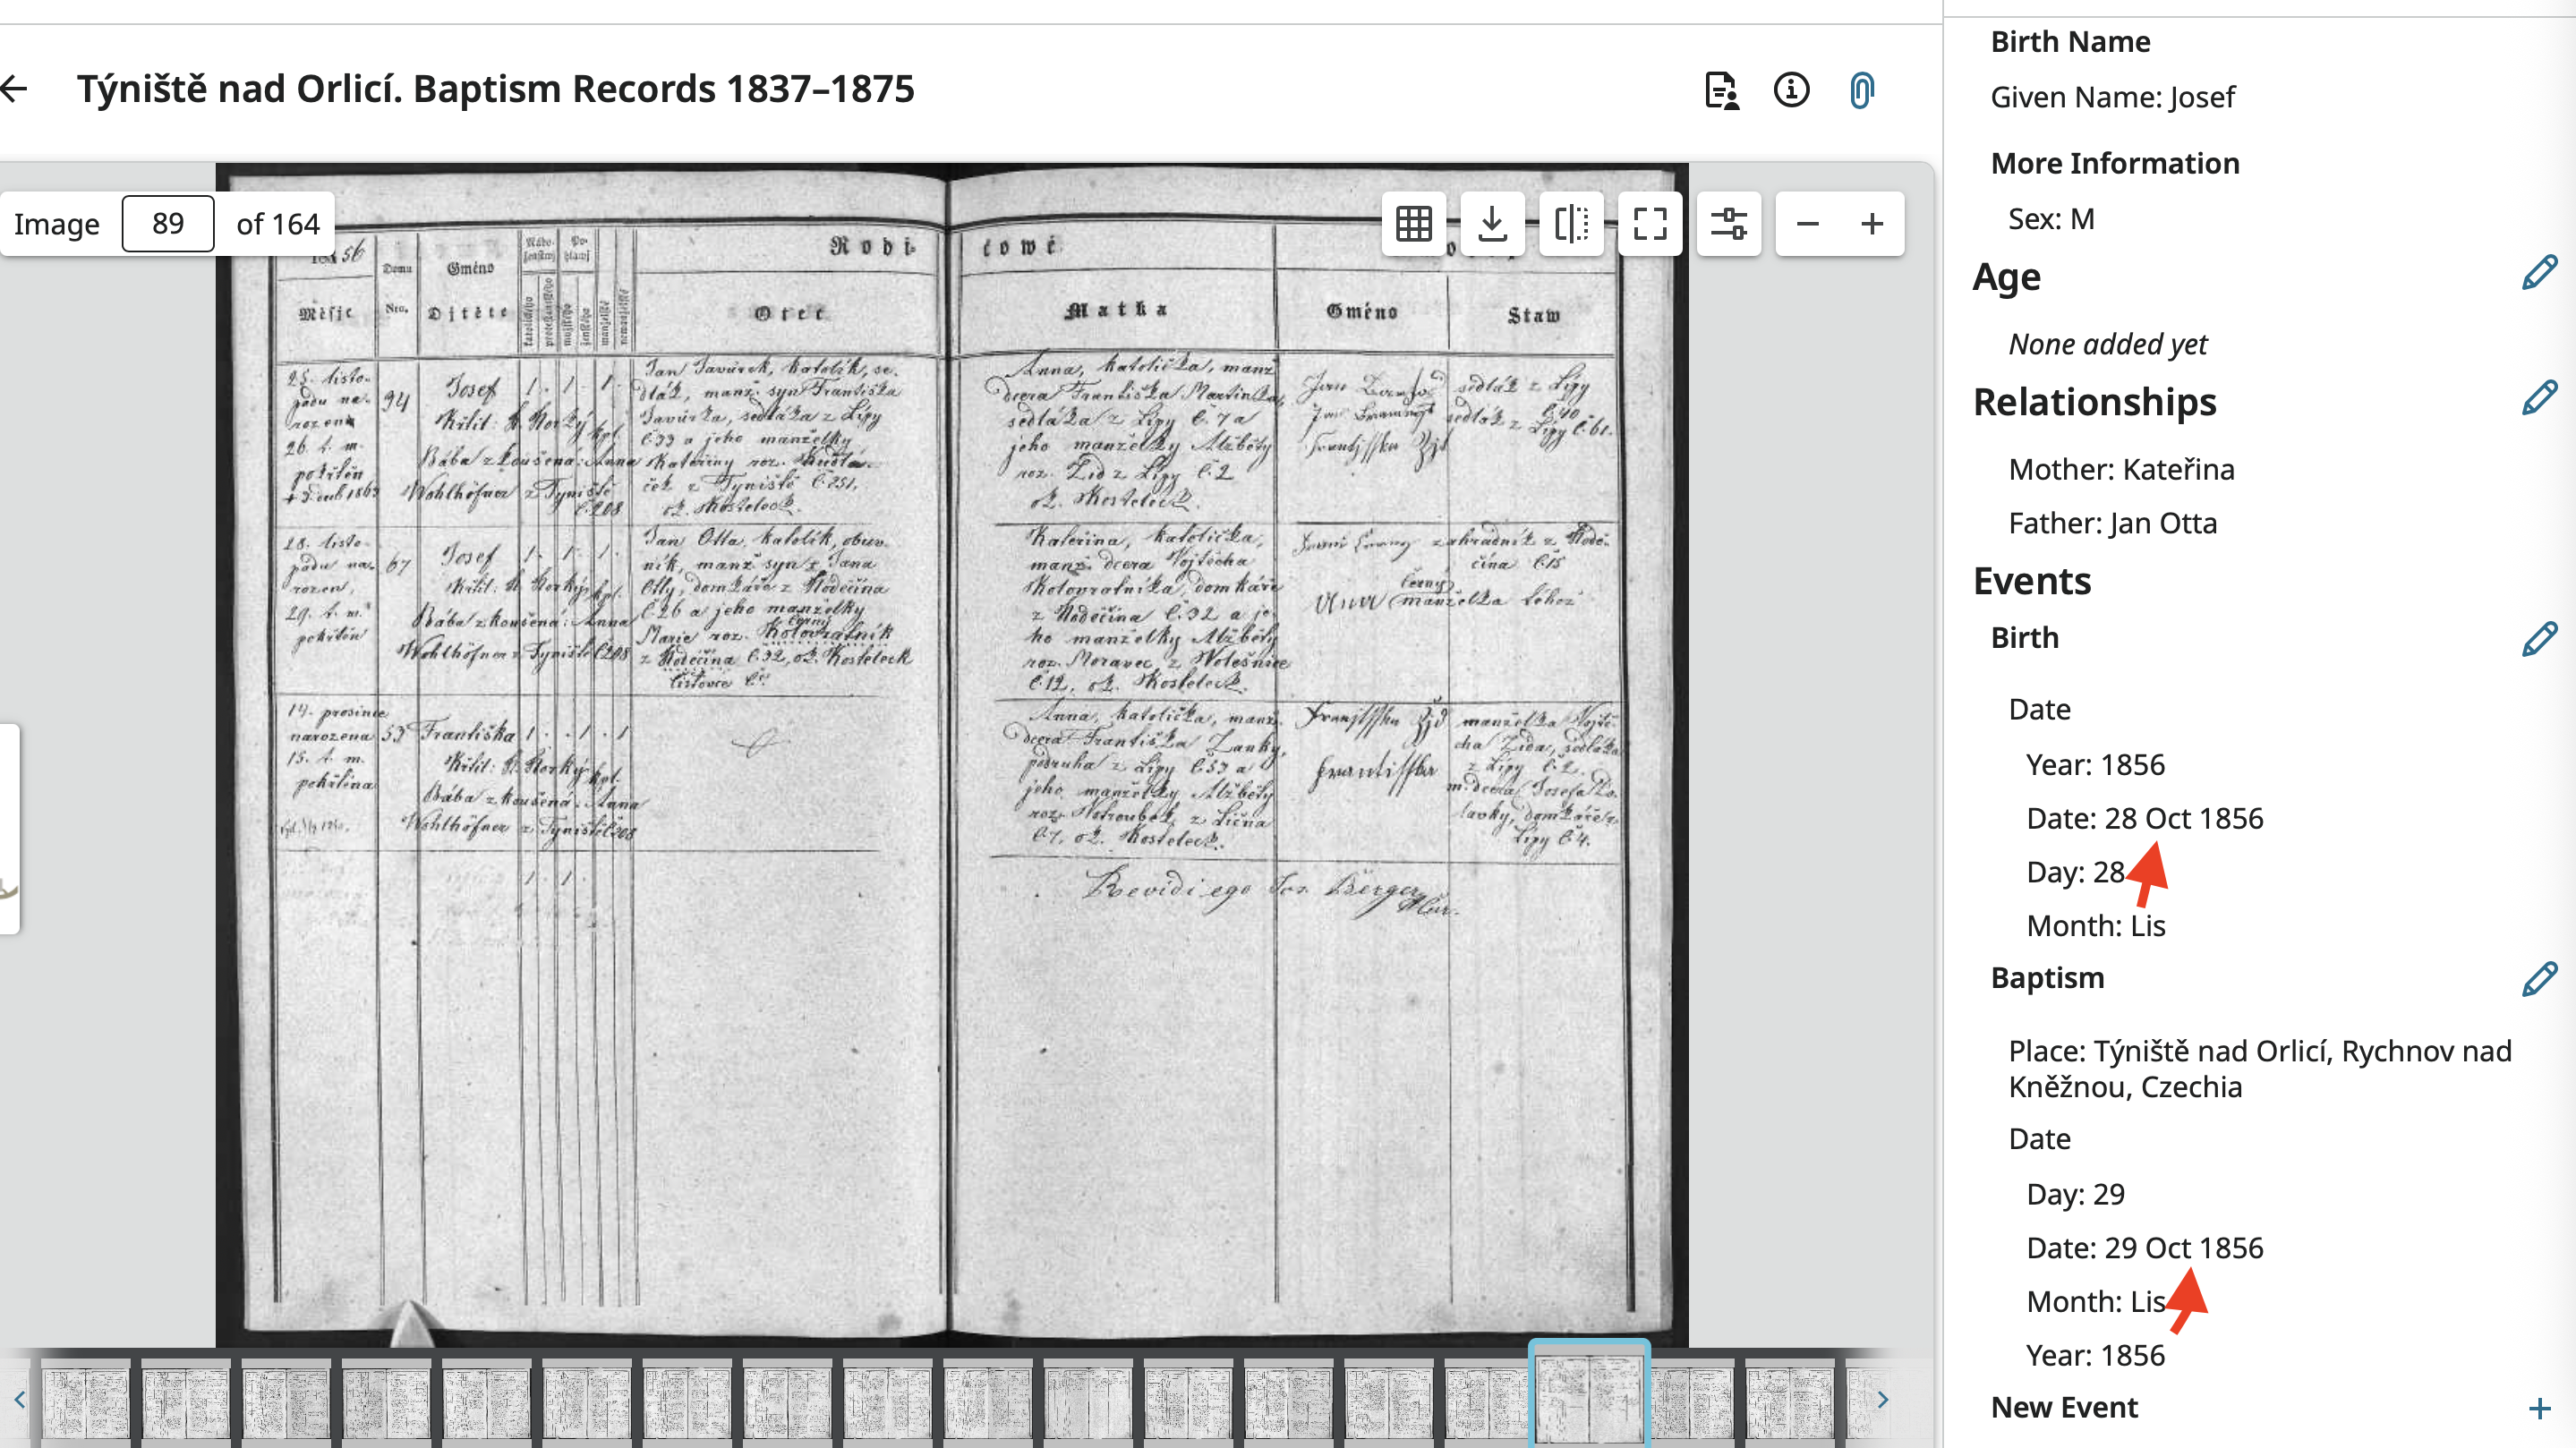 Týniště nad Orlicí. Baptism Records 1837–1875
Image 89 of 164
56
Měsjc
Domu
Nro.
Gméno
Djtěte
Rodi-
Otec
čowé
Matka
Gméno
Staw
25. listo-
pádu na-
26. t. m.
pokřtěn
94
Josef
1. 1. 1.
Křtil: Horký kpl.
Bába zkoušená: Anna
Wohlhöfner z Týniště
č. 208
Jan Javůrek, katolík, se-
dlák, manž. syn Františka
Javůrka, sedláka z Lípy
č. 33 a jeho manželky
Kateřiny roz.
z Týniště č. 251,
ok. Kosteleck.
Anna, katolička, manž.
dcera Františka Martinka,
sedláka z Lípy č. 7 a
jeho manželky Alžběty
roz. Žid z Lípy č. 2
ok. Kosteleck.
Jan
Jan
Frantjsska Žjd
sedlák z Lípy
č. 40
sedlák z Lípy č. 61.
28. listo-
pádu na-
rozen,
29. t. m.
pokřtěn
67
Josef
1. 1. 1.
Křtil: Horký kpl.
Bába zkoušená: Anna
Wohlhöfner z Týniště č. 208
Jan Otta, katolík, obuv-
ník, manž. syn Jana
Otty, domkáře z Koděčína
č. 26 a jeho manželky
černý
Marie roz. Kolovratník
z Koděčína č. 32, ok. Kosteleck
Kateřina, katolička,
manž. dcera Vojtěcha
Kolovratníka, domkáře
z Koděčína č. 32 a je-
ho manželky Alžběty
roz. Moravec, z Wolešnice
č. 12, ok. Kosteleck.
zahradník z Kodě-
čína č. 15
černý
Anna manželka téhož
14. prosince
narozena
15. t. m.
pokřtěna
53
Františka
1. . 1 . 1
Křtil: Horký kpl.
Bába zkoušená: Anna
Wohlhöfner z Týniště č. 208
Anna, katolička, manž.
dcera Františka Zanky,
podruha z Lípy č. 53 a
jeho manželky Alžběty
roz. z Lična
č. 7, ok. Kosteleck.
Frantjsska Žjd
Frantisska
manželka Vojtě-
cha Žida, sedláka
z Lípy č. 2.
m. dcera Josefa
domkáře z
Lípy č. 4.
1 . 1 .
Revidi ego Jos. Berger
Birth Name
Given Name: Josef
More Information
Sex: M
Age
None added yet
Relationships
Mother: Kateřina
Father: Jan Otta
Events
Birth
Date
Year: 1856
Date: 28 Oct 1856
Day: 28
Month: Lis
Baptism
Place: Týniště nad Orlicí, Rychnov nad
Kněžnou, Czechia
Date
Day: 29
Date: 29 Oct 1856
Month: Lis
Year: 1856
New Event